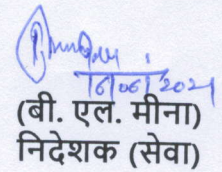 16/06/2021
(बी. एल. मीना)
निदेशक (सेवा)